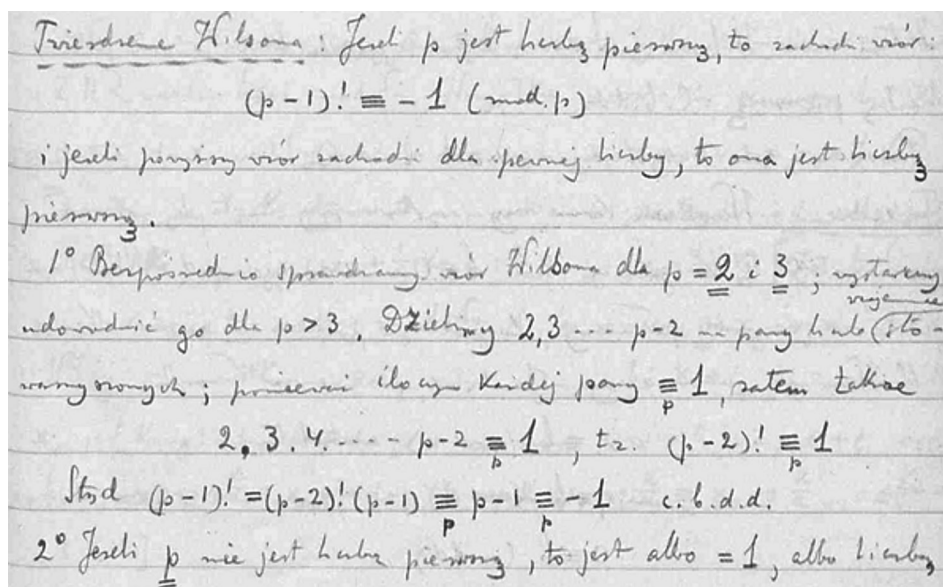 Twierdzenie Wilsona: Jeżeli p jest liczbą pierwszą, to zachodzi wzór:
(p-1)! ≡ -1 (mod. p)
i jeżeli powyższy wzór zachodzi dla pewnej liczby, to ona jest liczbą
pierwszą.
1° Bezpośrednio sprawdzamy wzór Wilsona dla p = 2 i 3, wystarczy
wzajemnie
udowodnić go dla p > 3. Dzielimy 2, 3 ... p-2 na pary liczb (sto-
warzyszonych; ponieważ iloczyn każdej pary ≡p 1, zatem także
2.3.4. ... p-2 ≡p 1, tz. (p-2)! ≡p 1
Stąd (p-1)! = (p-2)! (p-1) ≡p p-1 ≡p -1 c.b.d.d.
2° Jeżeli p nie jest liczbą pierwszą, to jest albo = 1, albo liczbą